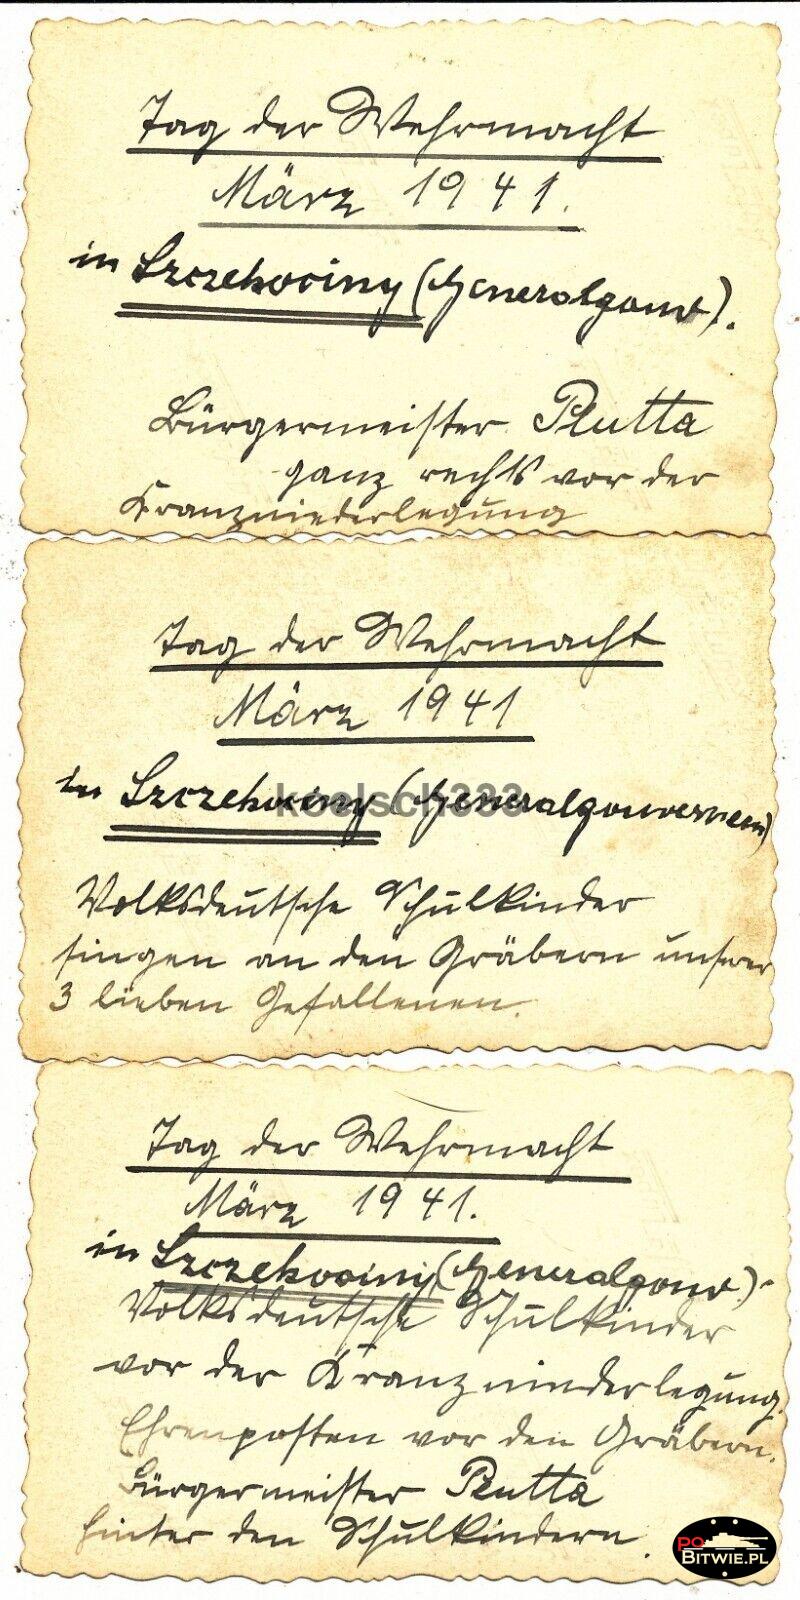 Tag der Wehrmacht
März 1941.
in Szczekociny (Generalgouv).
Bürgermeister Plutta
ganz rechts vor der
Kranzniederlegung
Tag der Wehrmacht
März 1941
in Szczekociny (Generalgouvernem)
koelsch333
Volksdeutsche Schulkinder
singen an den Gräbern unserer
3 lieben Gefallenen.
Tag der Wehrmacht
März 1941.
in Szczekociny (Generalgouv).
Volksdeutsche Schulkinder
vor der Kranzniederlegung.
Ehrenposten vor den Gräbern.
Bürgermeister Plutta
hinter den Schulkindern.
PO
BITWIE.PL